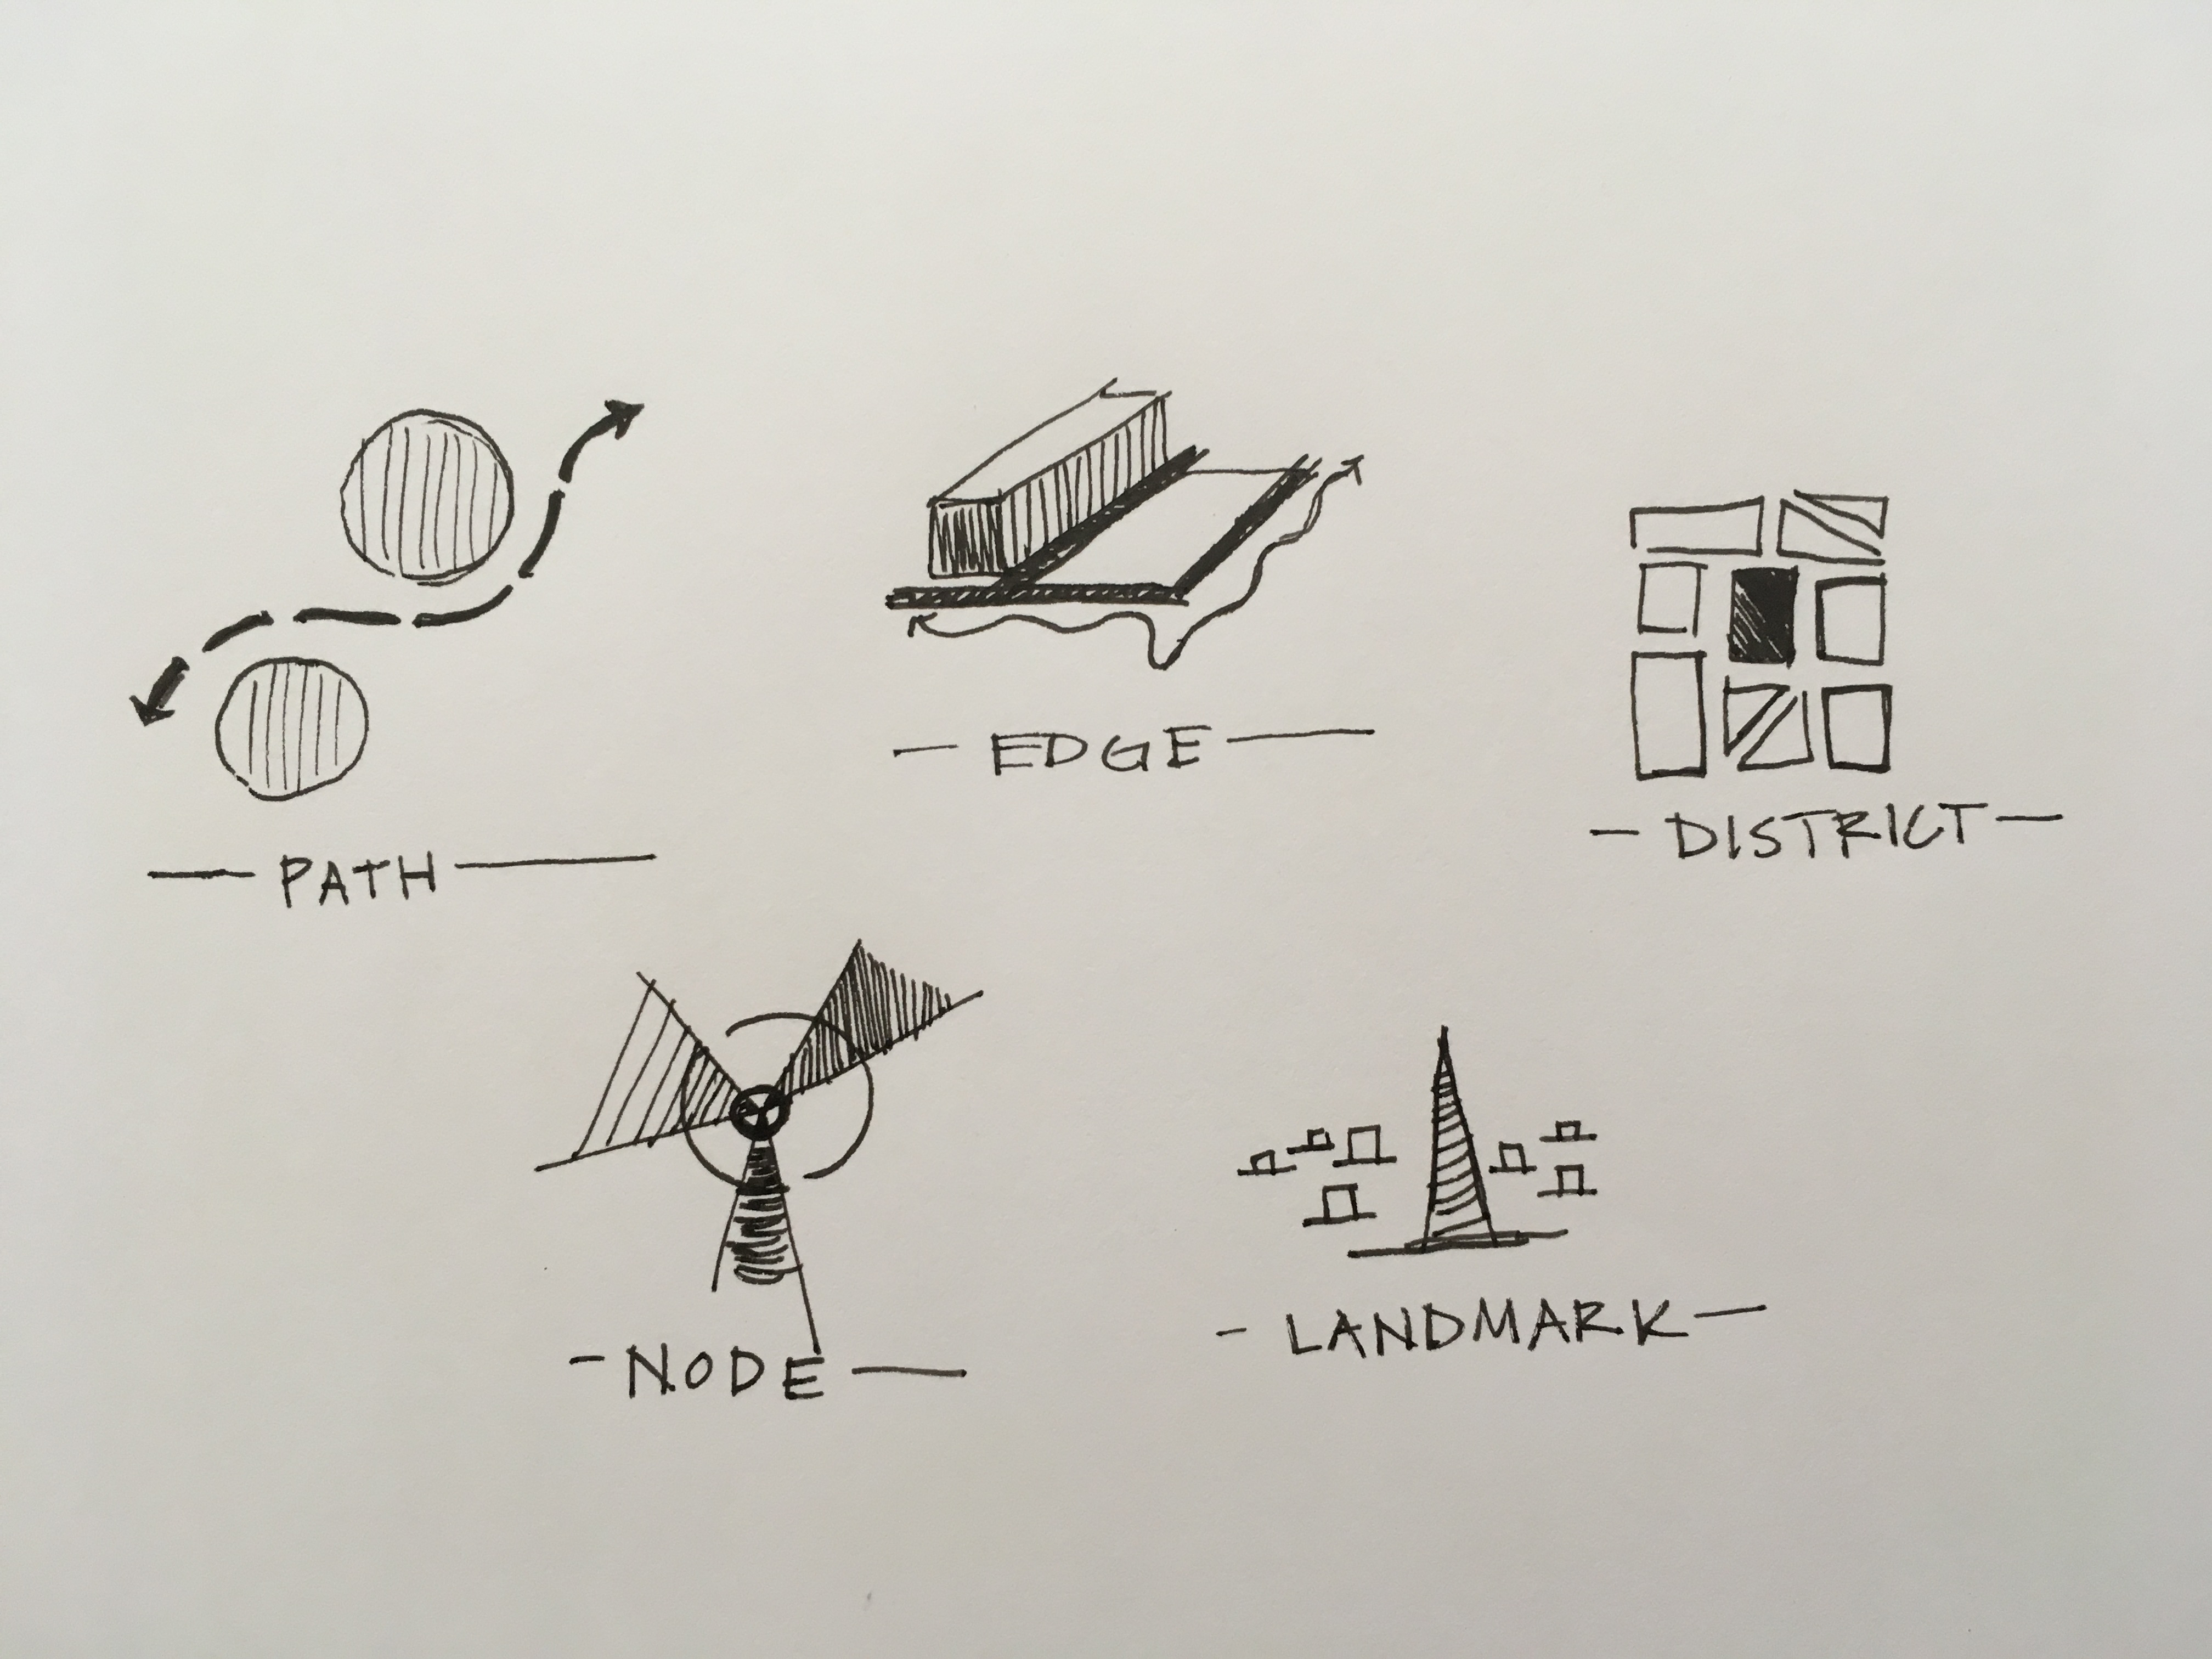 EDGE
DISTRICT
PATH
LANDMARK
NODE